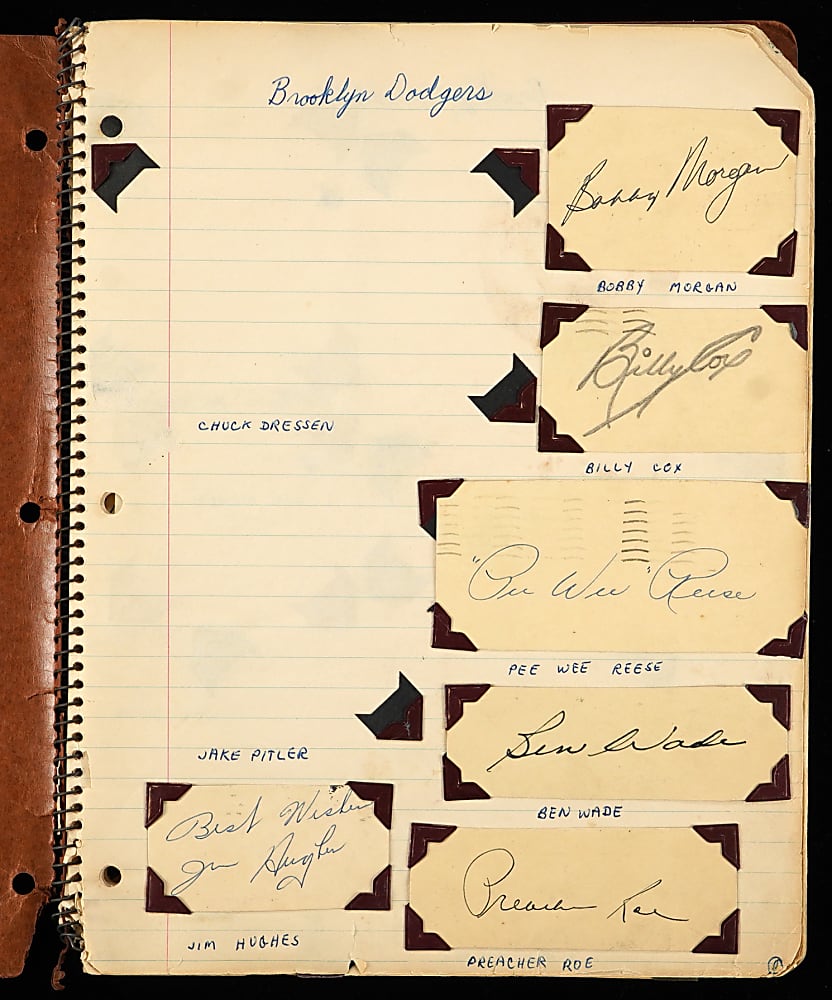 Brooklyn Dodgers
Bobby Morgan
BOBBY MORGAN
Billy Cox
CHUCK DRESSEN
BILLY COX
"Pee Wee" Reese
PEE WEE REESE
Ben Wade
JAKE PITLER
BEN WADE
Best Wishes
Jim Hughes
Preacher Roe
JIM HUGHES
PREACHER ROE